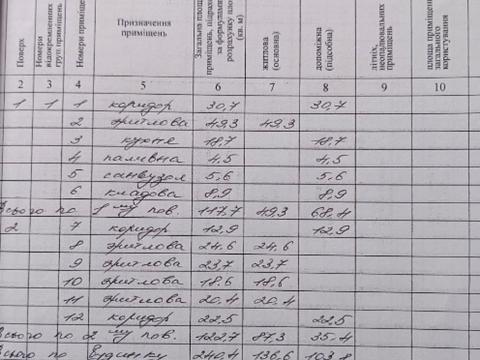 Поверх
Номери
відокремлених
груп приміщень
Номери приміщень
Призначення
приміщень
Загальна площа
приміщень,
за формулами
розрахунку
(кв. м)
житлова
(основна)
допоміжна
(підсобна)
літніх,
неопалювальних
приміщень
площа приміщень
загального
користування
2 3 4 5 6 7 8 9 10
1 1 1 коридор 30,7 30,7
2 житлова 49,3 49,3
3 кухня 18,7 18,7
4 паливна 4,5 4,5
5 санвузол 5,6 5,6
6 кладова 8,9 8,9
Всього по 1му пов. 117,7 49,3 68,4
2 7 коридор 12,9 12,9
8 житлова 24,6 24,6
9 житлова 23,7 23,7
10 житлова 18,6 18,6
11 житлова 20,4 20,4
12 коридор 22,5 22,5
Всього по 2му пов. 122,7 87,3 35,4
Всього по будинку 240,4 136,6 103,8